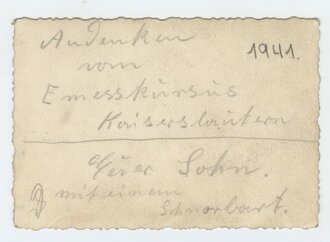 Andenken
1941.
vom
Emesskursus
Kaiserslautern
Euer Sohn.
mit einem
Schnorbart.